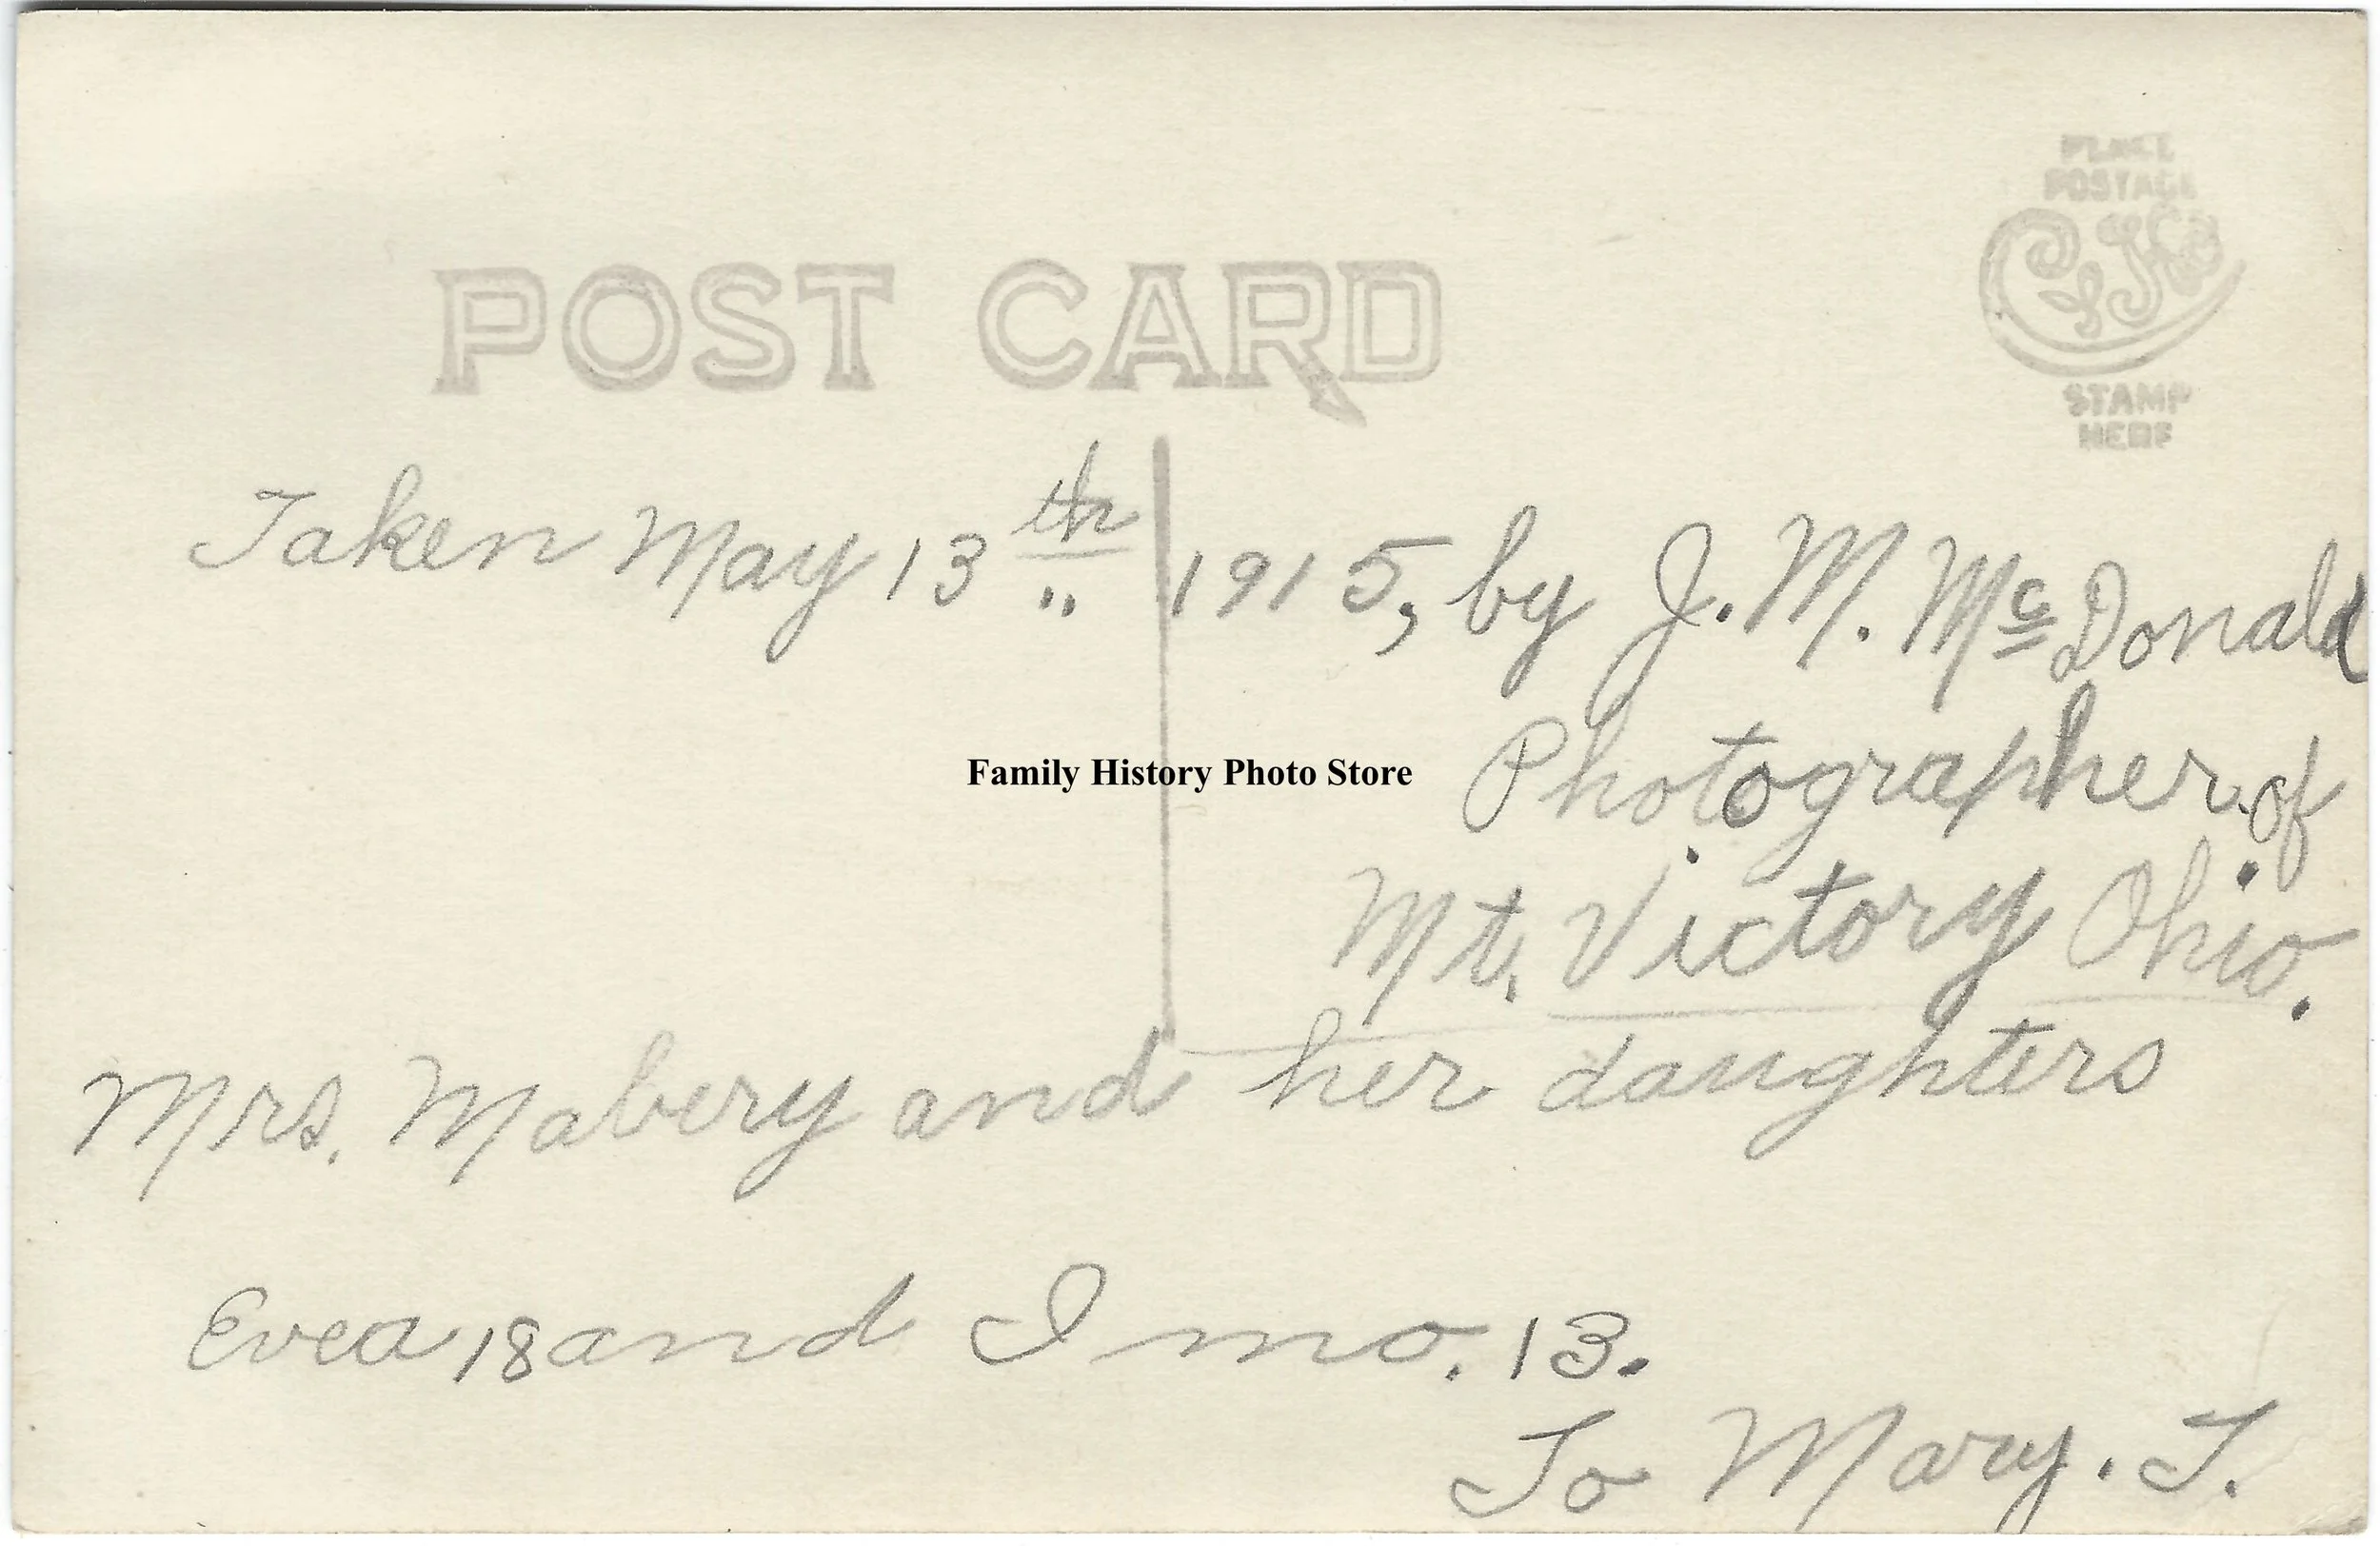 PLACE
POSTAGE
POST CARD
STAMP
HERE
Taken May 13th 1915, by J. M. McDonald
Photographer. of
Family History Photo Store
Mt. Victory Ohio.
Mrs. Mabery and her daughters
Evea 18 and Imo. 13.
To Mary. T.